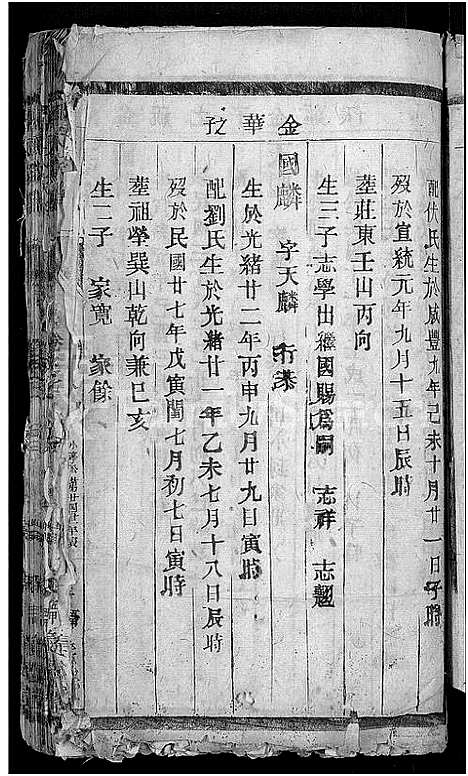 配伏氏生於咸豐九年己未十月廿一日子時
歿於宣統元年九月十五日辰時
塟莊東壬山丙向
生三子志學出繼國賜爲嗣 志祥 志魁
金華孜
國麟 字天麟 行恭
生於光緒廿二年丙申九月廿九日寅時
配劉氏生於光緒廿一年乙未七月十八日辰時
歿於民國廿七年戊寅閏七月初七日寅時
塟祖塋巽山乾向兼巳亥
生二子 家寬 家餘